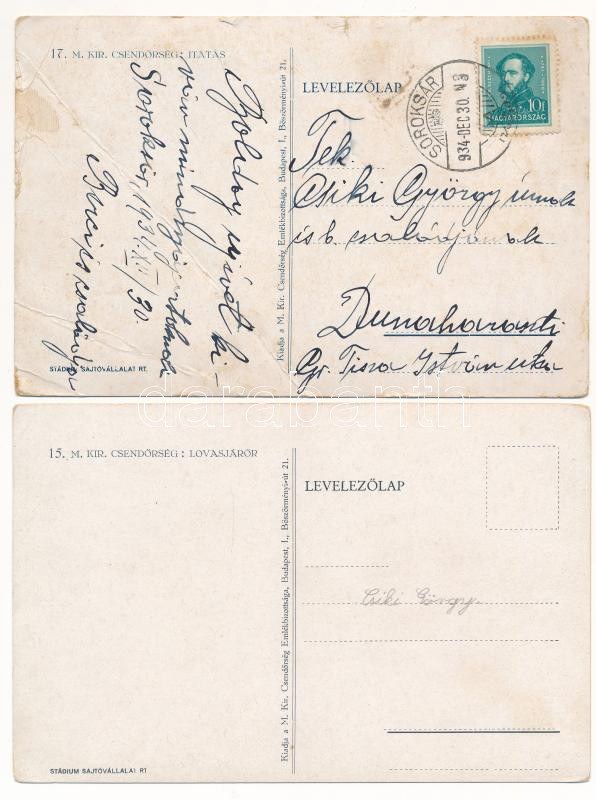 17. M. KIR. CSENDŐRSÉG: ITATÁS
Boldog ujévet ki-
ván mindnyájatoknak
Soroksár, 1934. XII/30.
Berci és családja
STÁDIUM SAJTÓVÁLLALAT RT.
Kiadja a M. Kir. Csendőrség Emlékbizottsága, Budapest, I., Böszörményi-út 21.
LEVELEZŐLAP
SOROKSÁR
934-DEC 30.
10f
MAGYARORSZÁG
Tek.
Csiki György úrnak
és b. családjának
Dunaharaszti
Gr. Tisza István utca
darabanth
15. M. KIR. CSENDŐRSÉG: LOVASJÁRŐR
STÁDIUM SAJTÓVÁLLALAT RT
Kiadja a M. Kir. Csendőrség Emlékbizottsága, Budapest, I., Böszörményi-út 21.
LEVELEZŐLAP
Csiki György